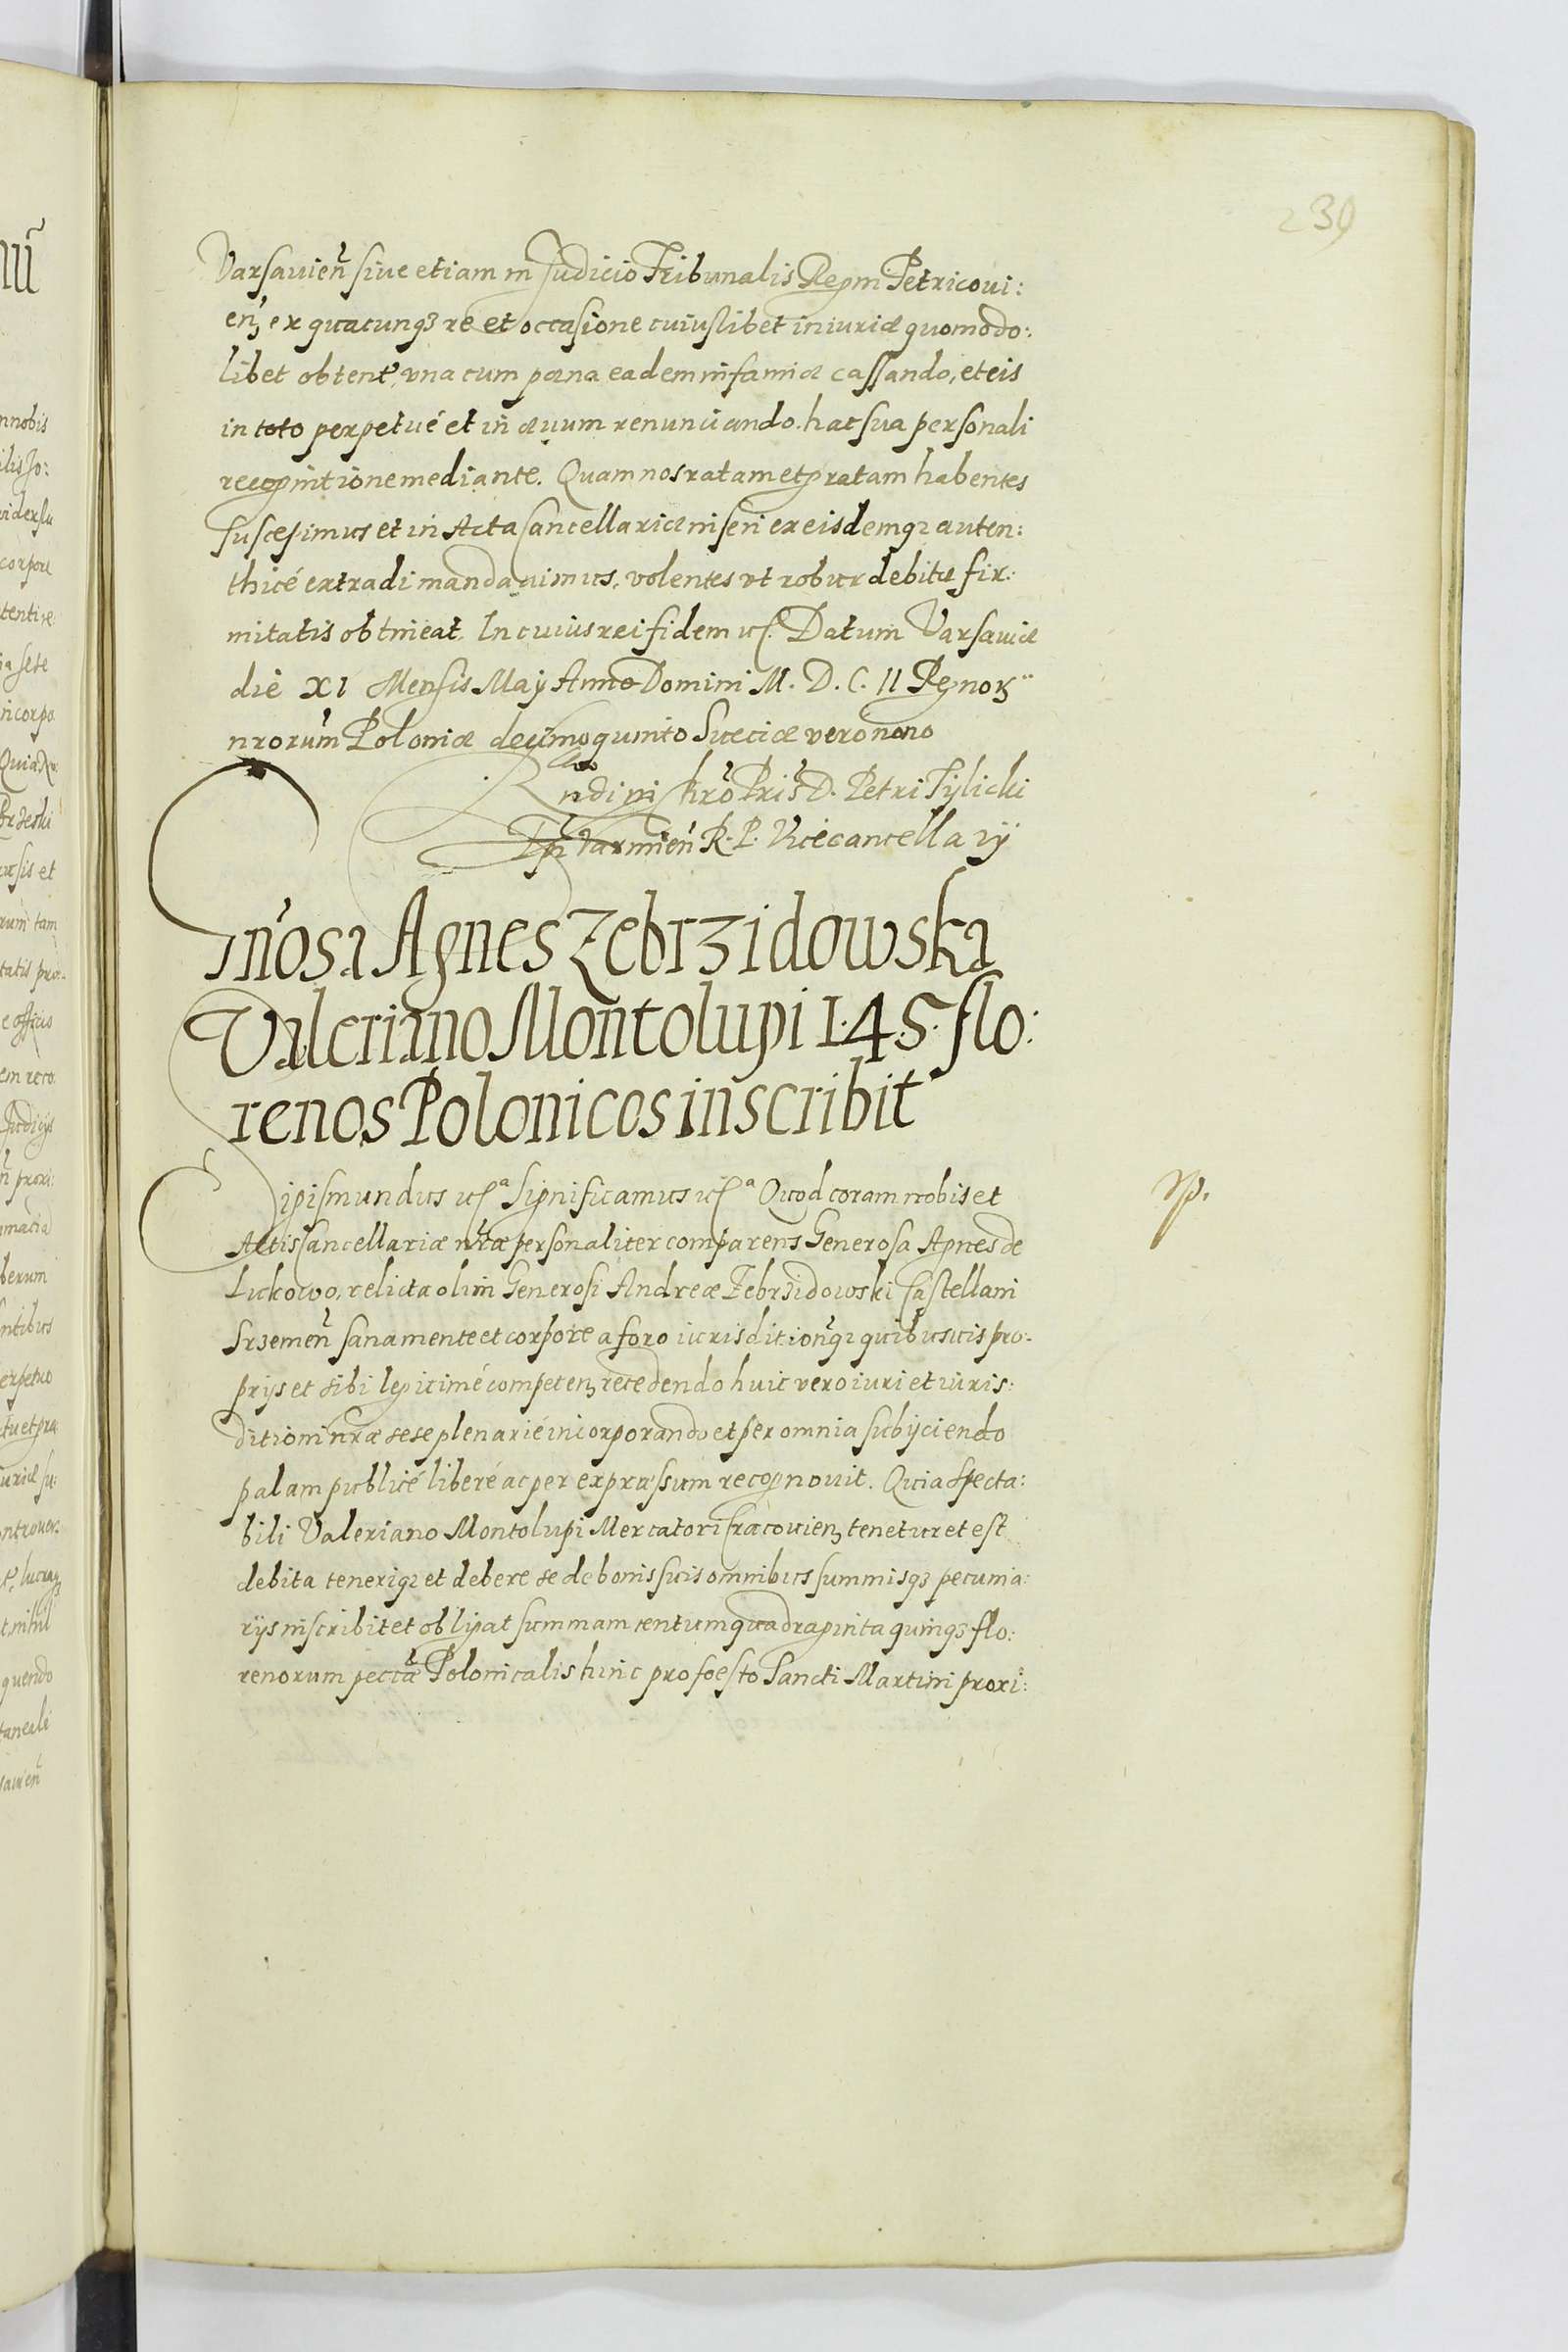 239
Varsavieñ siue etiam in Judicio Tribunalis Regni Petricoui:
enʒ ex quacunqʒ re et occasione cuiuslibet iniuriæ quomodo:
libet obtent, vna cum pœna eadem infamiæ cassando, et eis
in toto perpetué et in æuum renunciando. hac sua personali
recognitione mediante. Quam nos ratam et gratam habentes
suscepimus et in Acta Cancellariæ inseri ex eisdemqʒ auten:
thicé extradi mandauimus, volentes vt robur debitæ fir:
mitatis obtineat. In cuius rei fidem uſ. Datum Varsauiæ
die XI Mensis Maÿ Anno Domini M. D. C. II Regnorʒ
nrorum Poloniæ decimoquinto Sueciæ vero nono
Rndi in Chrō Pris D. Petri Tÿlicki
Epi Varmień R. P. Vicecancellarÿ
Gnosa Agnes Zebrzidowska
Valeriano Montolupi 1.4.5. flo:
renos Polonicos inscribit
Sigismundus uſᵃ Significamus uſᵃ Quod coram nobis et
np.
Actis Cancellariæ nræ personaliter comparens Generosa Agnes de
Luckowo, relicta olim Generosi Andreæ Zebrzidowski Castellani
Srzemeñ sana mente et corpore a foro iurisditionqʒ quibusuis pro:
prijs et sibi legitimé competenʒ recedendo huic vero iuri et iuris:
ditioni nræ sese plenarié incorporando et per omnia subijciendo
palam publicé liberé ac per expræssum recognouit. Quia specta:
bili Valeriano Montolupi Mercatori Cracouienʒ tenetur et est
debita tenerique et debere se de bonis suis omnibus summisqʒ pecunia:
rijs inscribit et obligat summam centum quadraginta quinqʒ flo:
renorum peccæ Polonicalis hinc pro foesto Sancti Martini proxi: